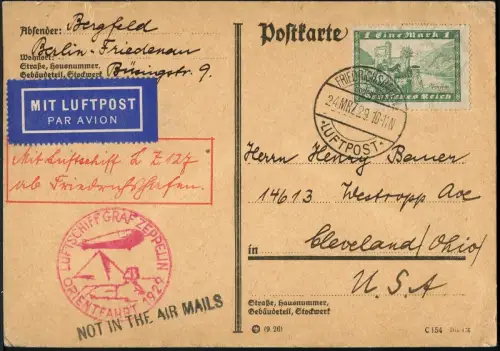 Absender: Bergfeld
Berlin-Friedenau
Wohnort:
Straße, Hausnummer,
Gebäudeteil, Stockwerk
Büsingstr. 9.
MIT LUFTPOST
PAR AVION
Mit Luftschiff L Z 127
ab Friedrichshafen.
LUFTSCHIFF GRAF ZEPPELIN
ORIENTFAHRT 1929
NOT IN THE AIR MAILS
Postkarte
1 Eine Mark 1
Deutsches Reich
24.MRZ.29.10-11N
LUFTPOST
Herrn Henry Bauer
14613 Westropp Ave
in Cleveland/Ohio/
U.S.A
Straße, Hausnummer,
Gebäudeteil, Stockwerk
(9.26)
C 154